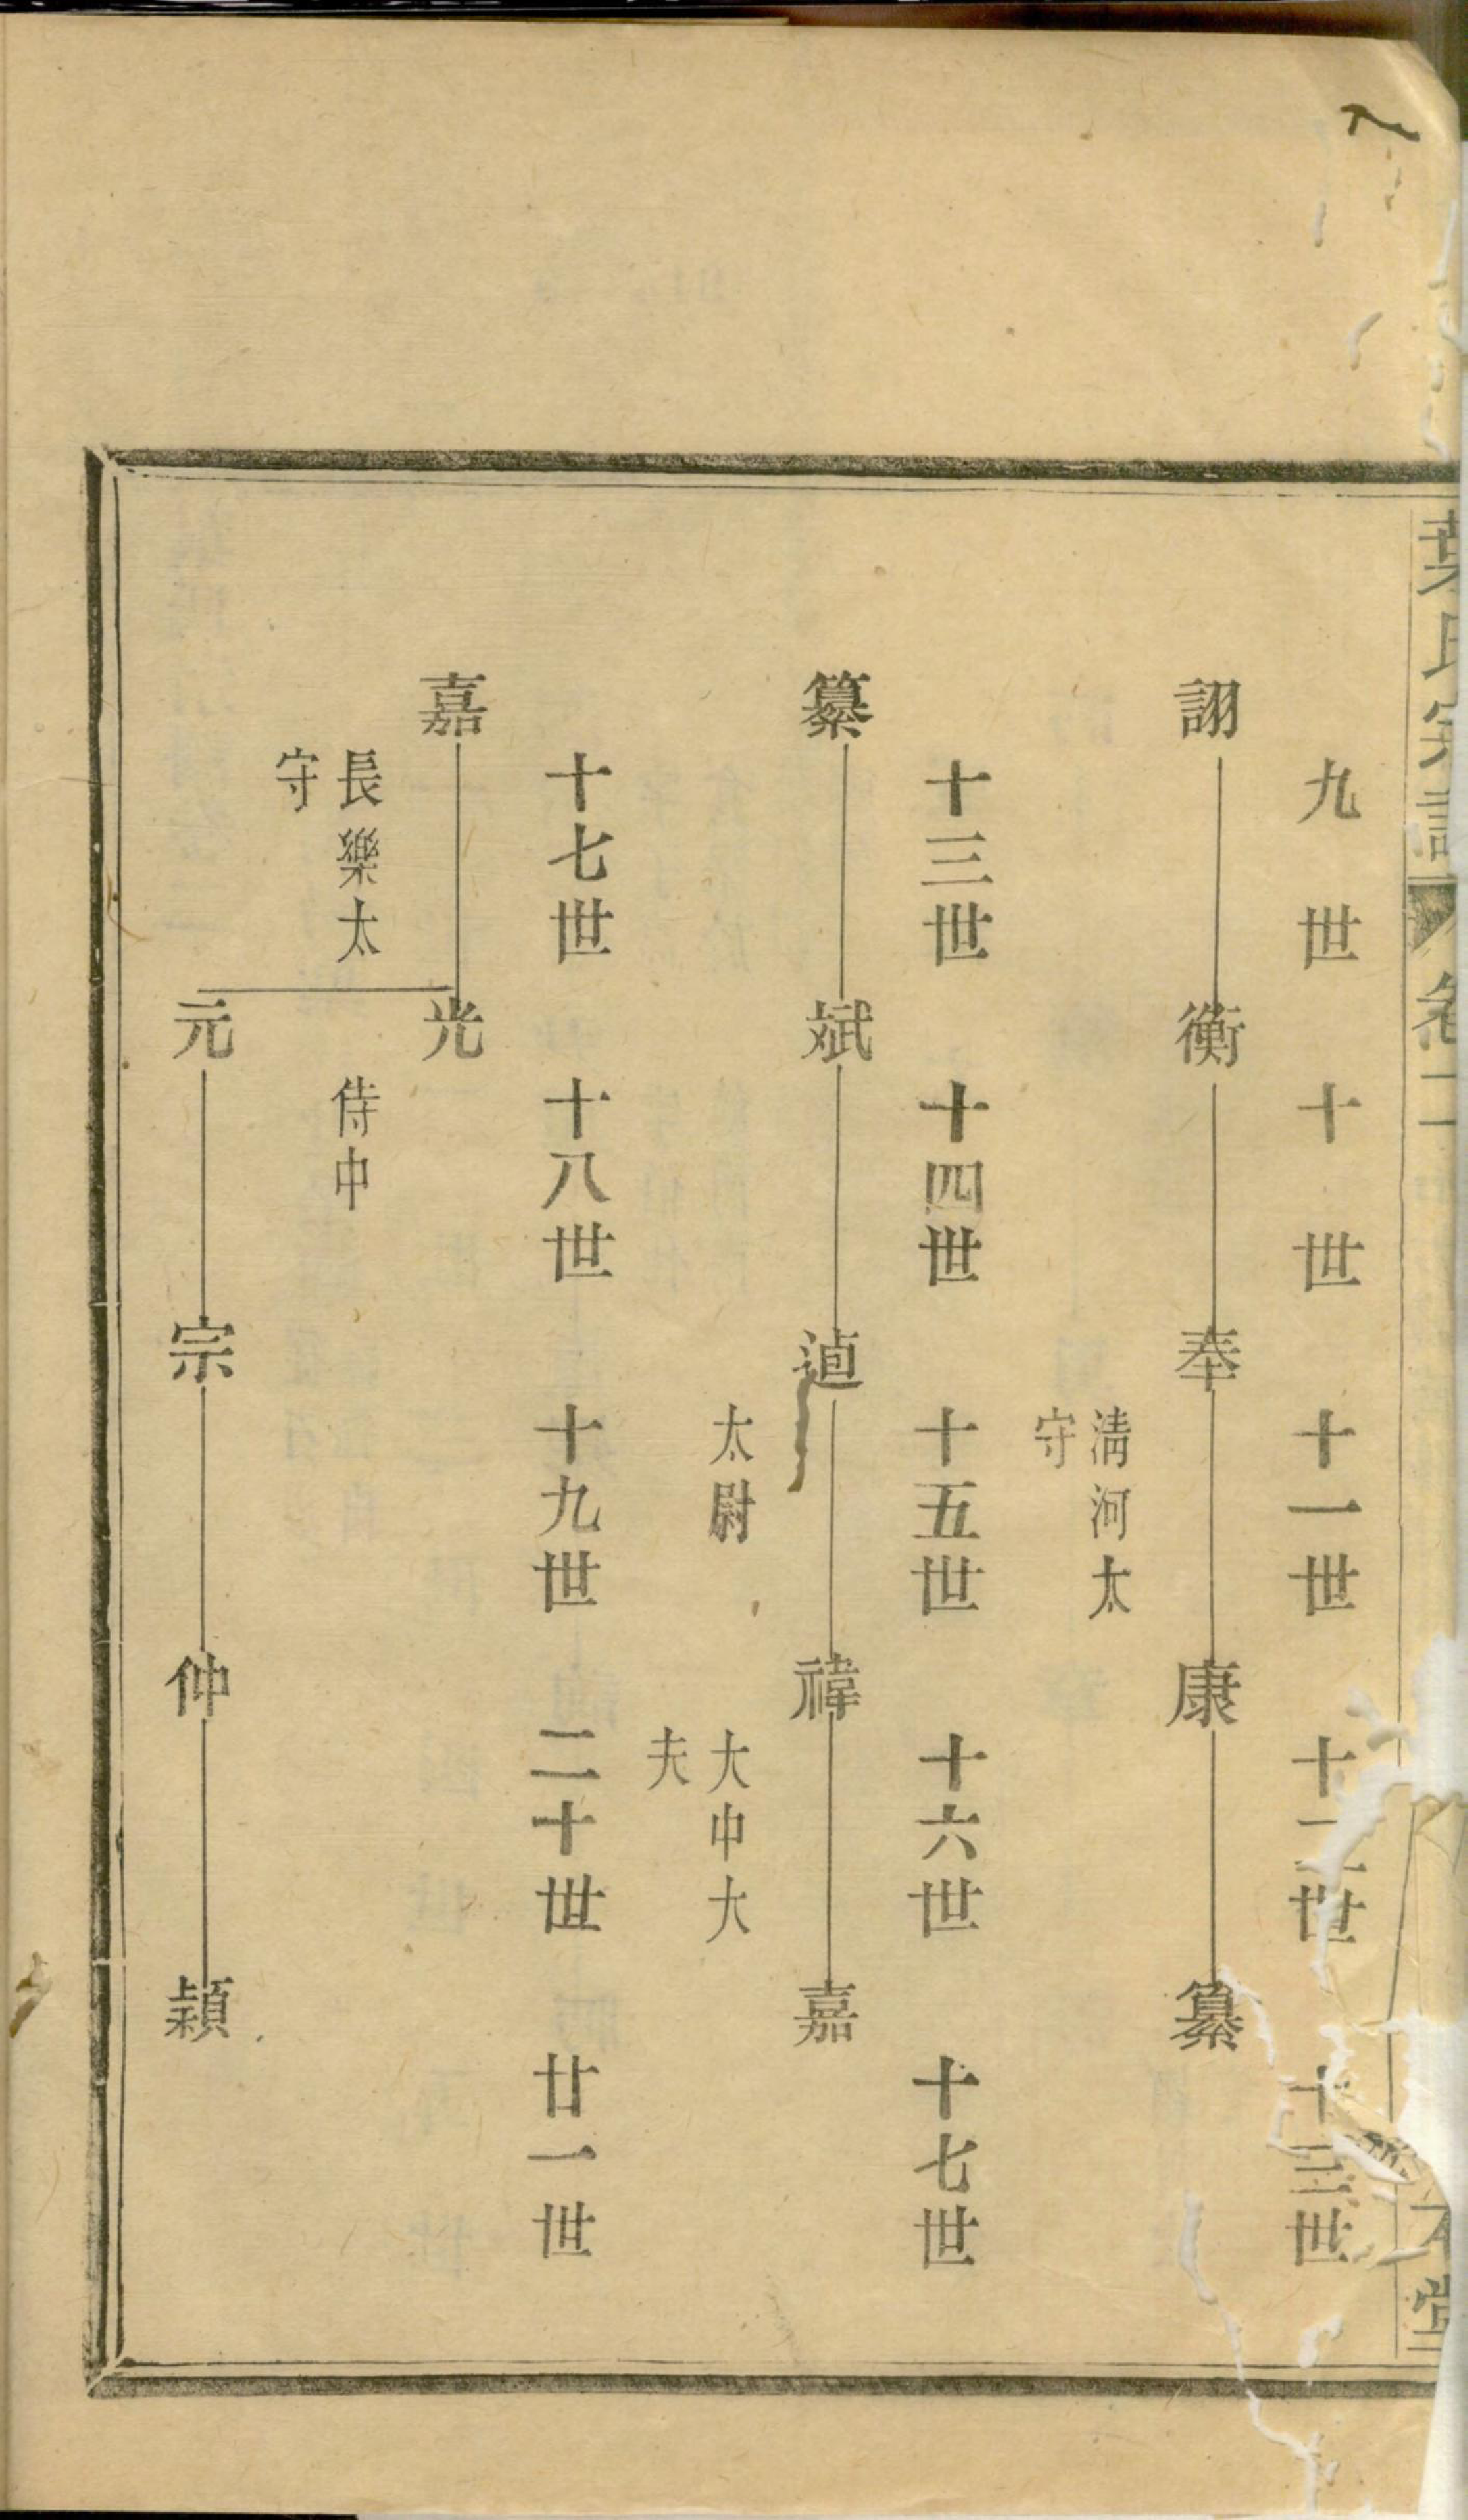 葉氏宗譜 卷二
堂
九世 十世 十一世 十二世 十三世
詡 衡 奉 康 纂
清河太
守
十三世 十四世 十五世 十六世 十七世
纂 斌 禕 嘉
太尉 大中大
夫
十七世 十八世 十九世 二十世 廿一世
嘉 光
長樂太 侍中
守
元 宗 仲 穎